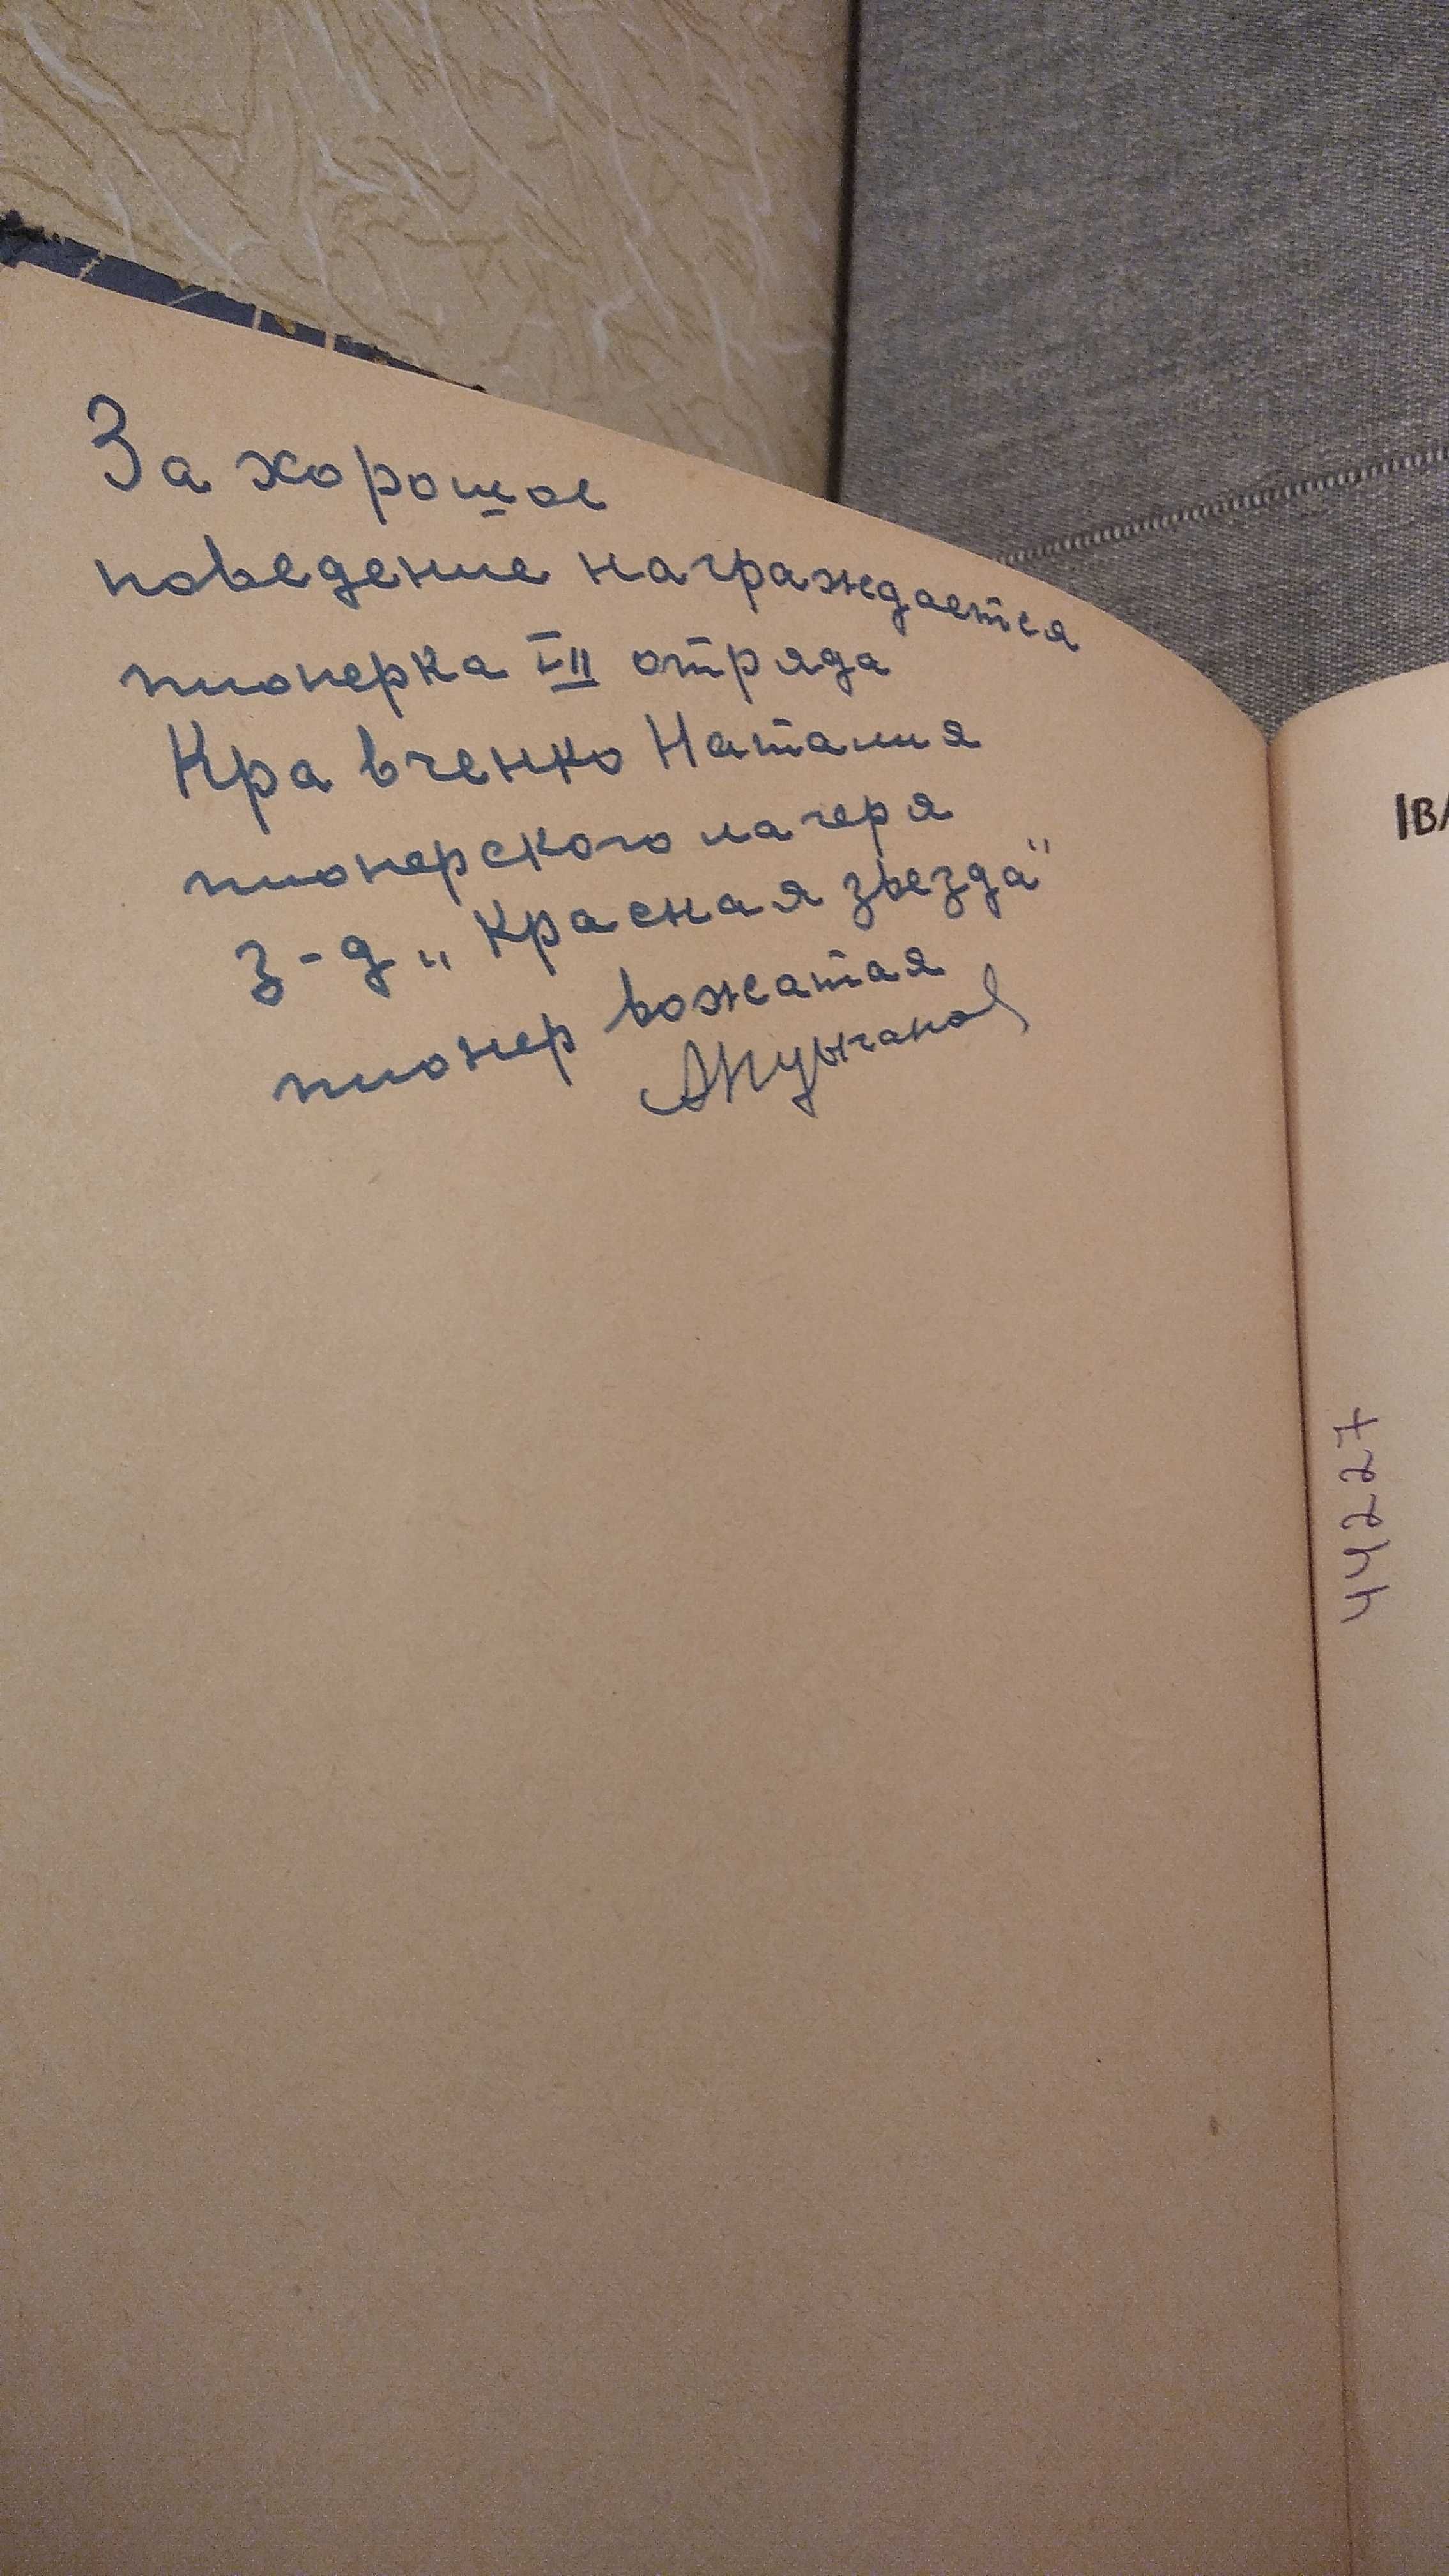 За хорошое
поведение награждается
пионерка III отряда
Кравченко Наталия
пионерского лагеря
з-д „Красная звезда"
пионер вожатая
ІВ
44227